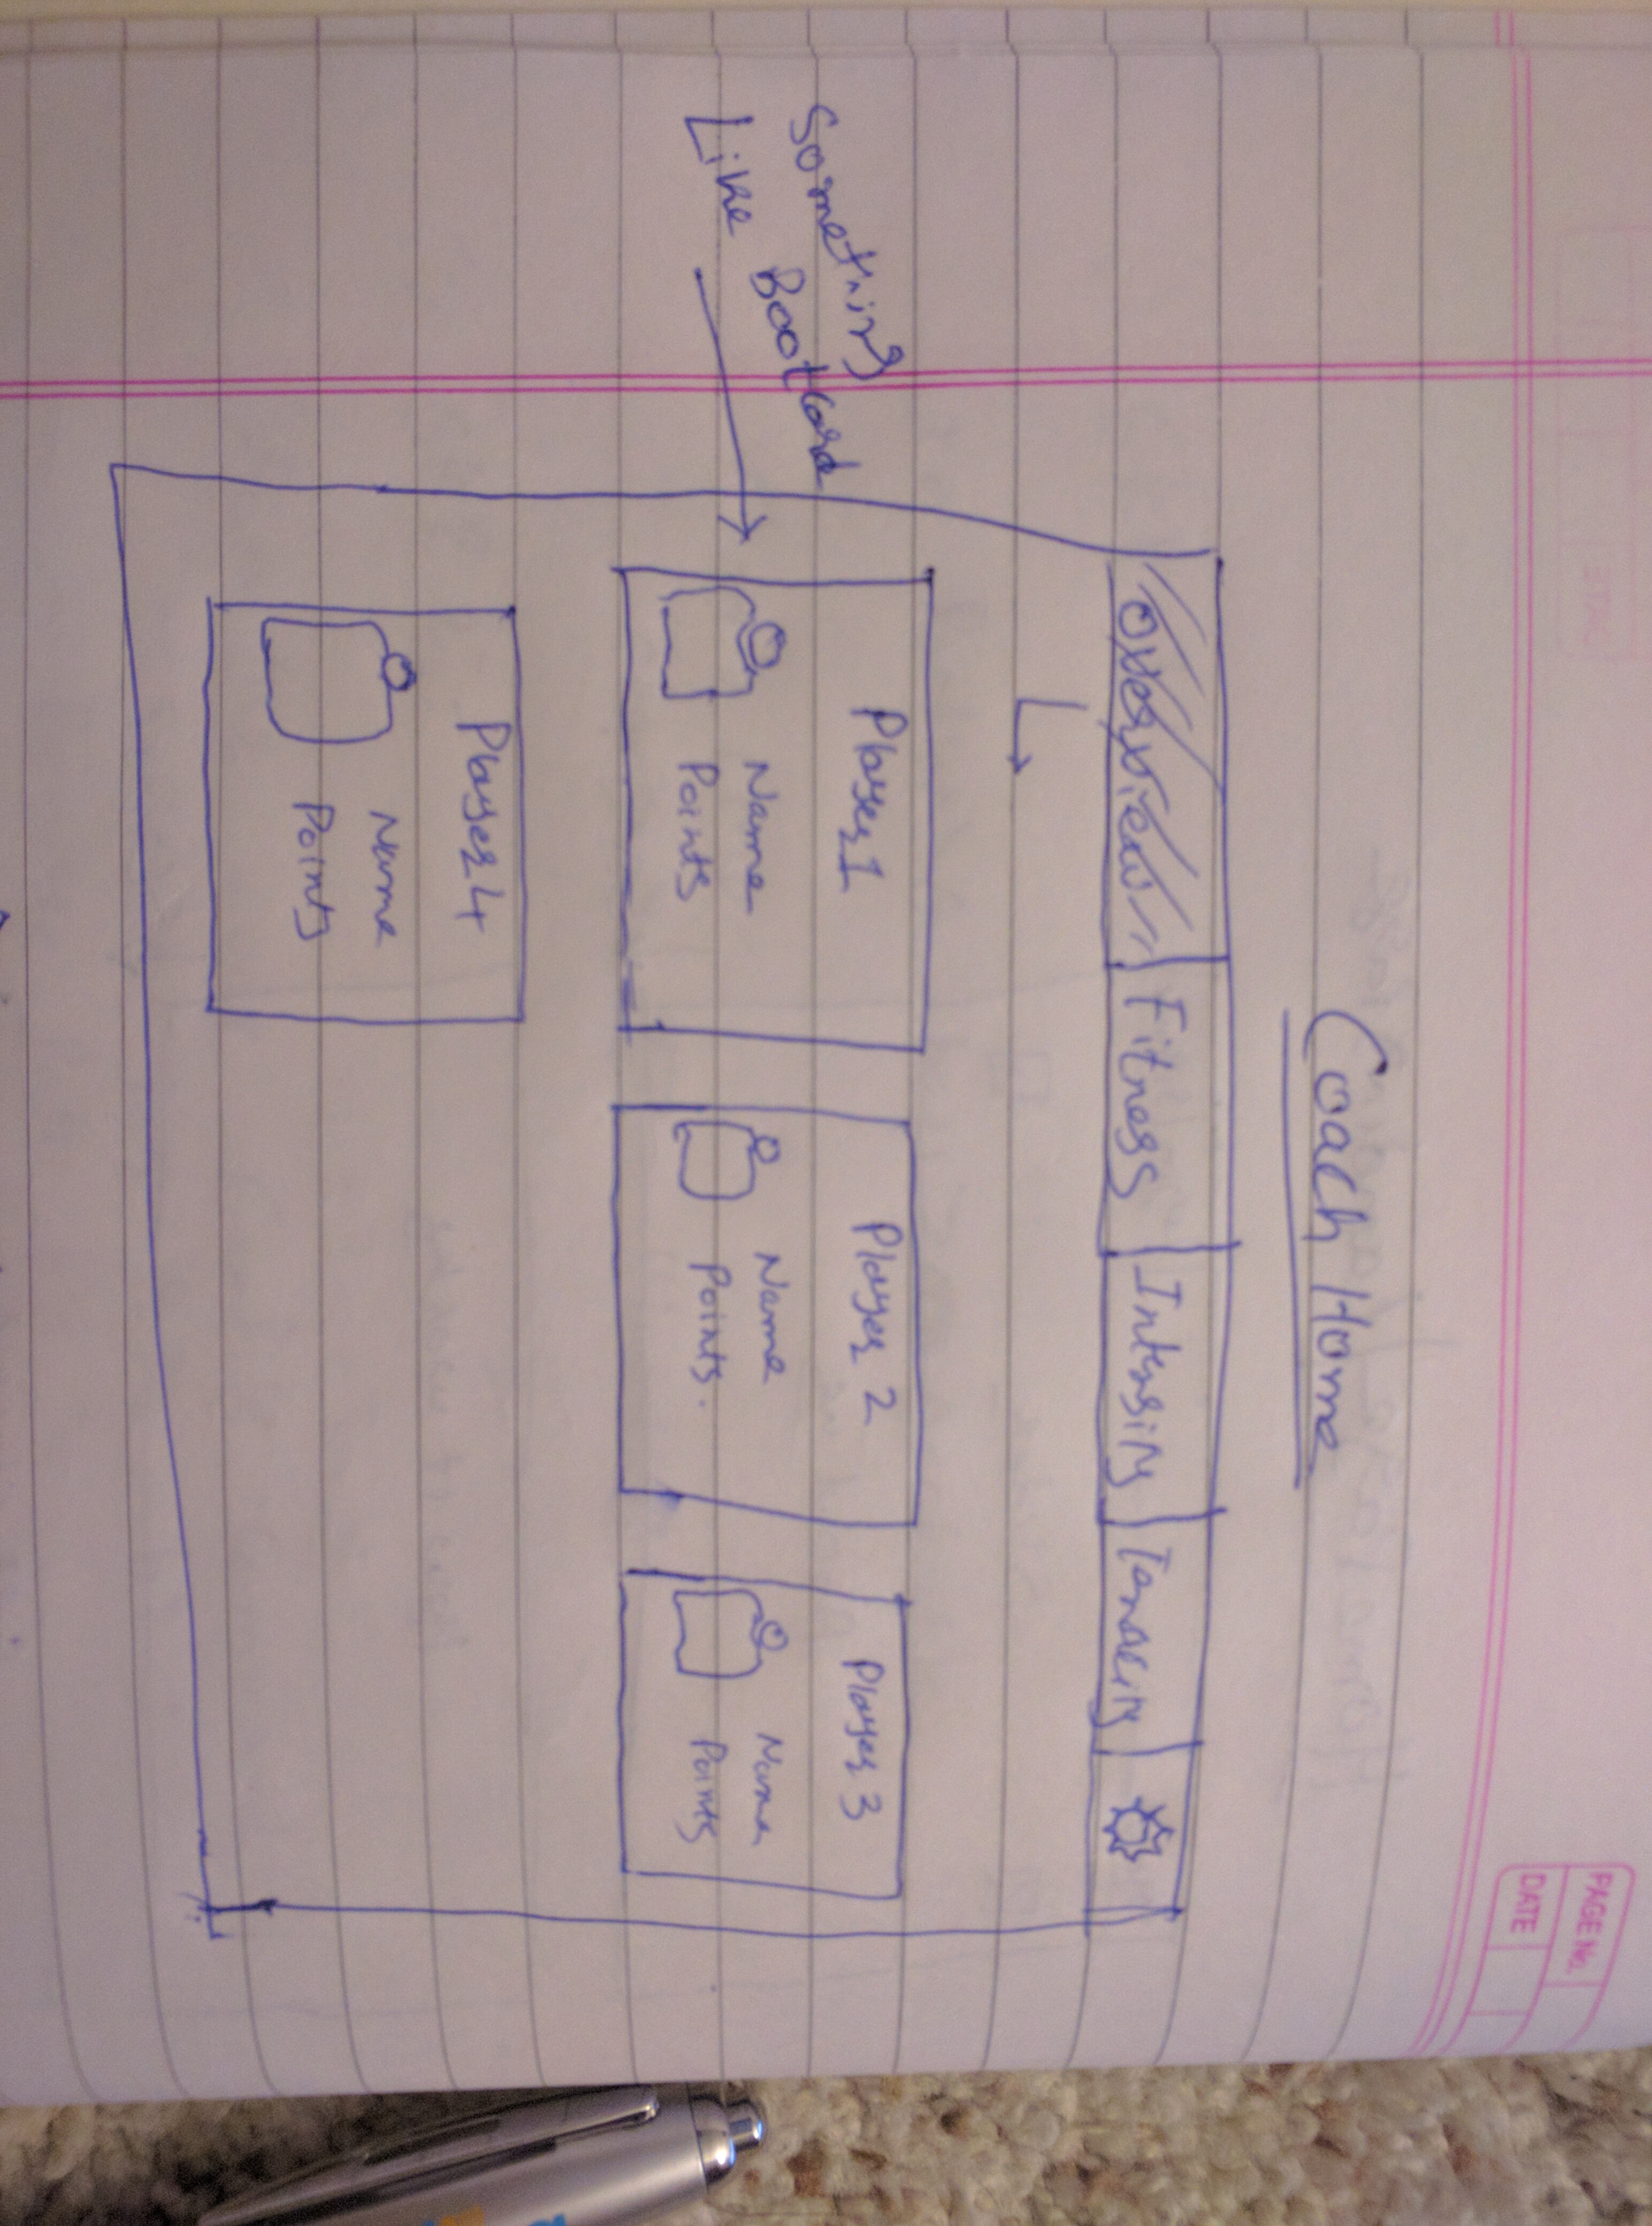 PAGE No.
DATE
Coach Home
Overview Fitness Intensity Tenacity
Something
Like BootCard
Player 1
Name
Points
Player 2
Name
Points.
Player 3
Name
Points
Player 4
Name
Points